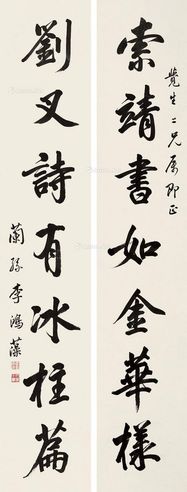 覺生二兄属即正
索靖書如金華樣
劉叉詩有冰柱篇
蘭孫李鴻藻